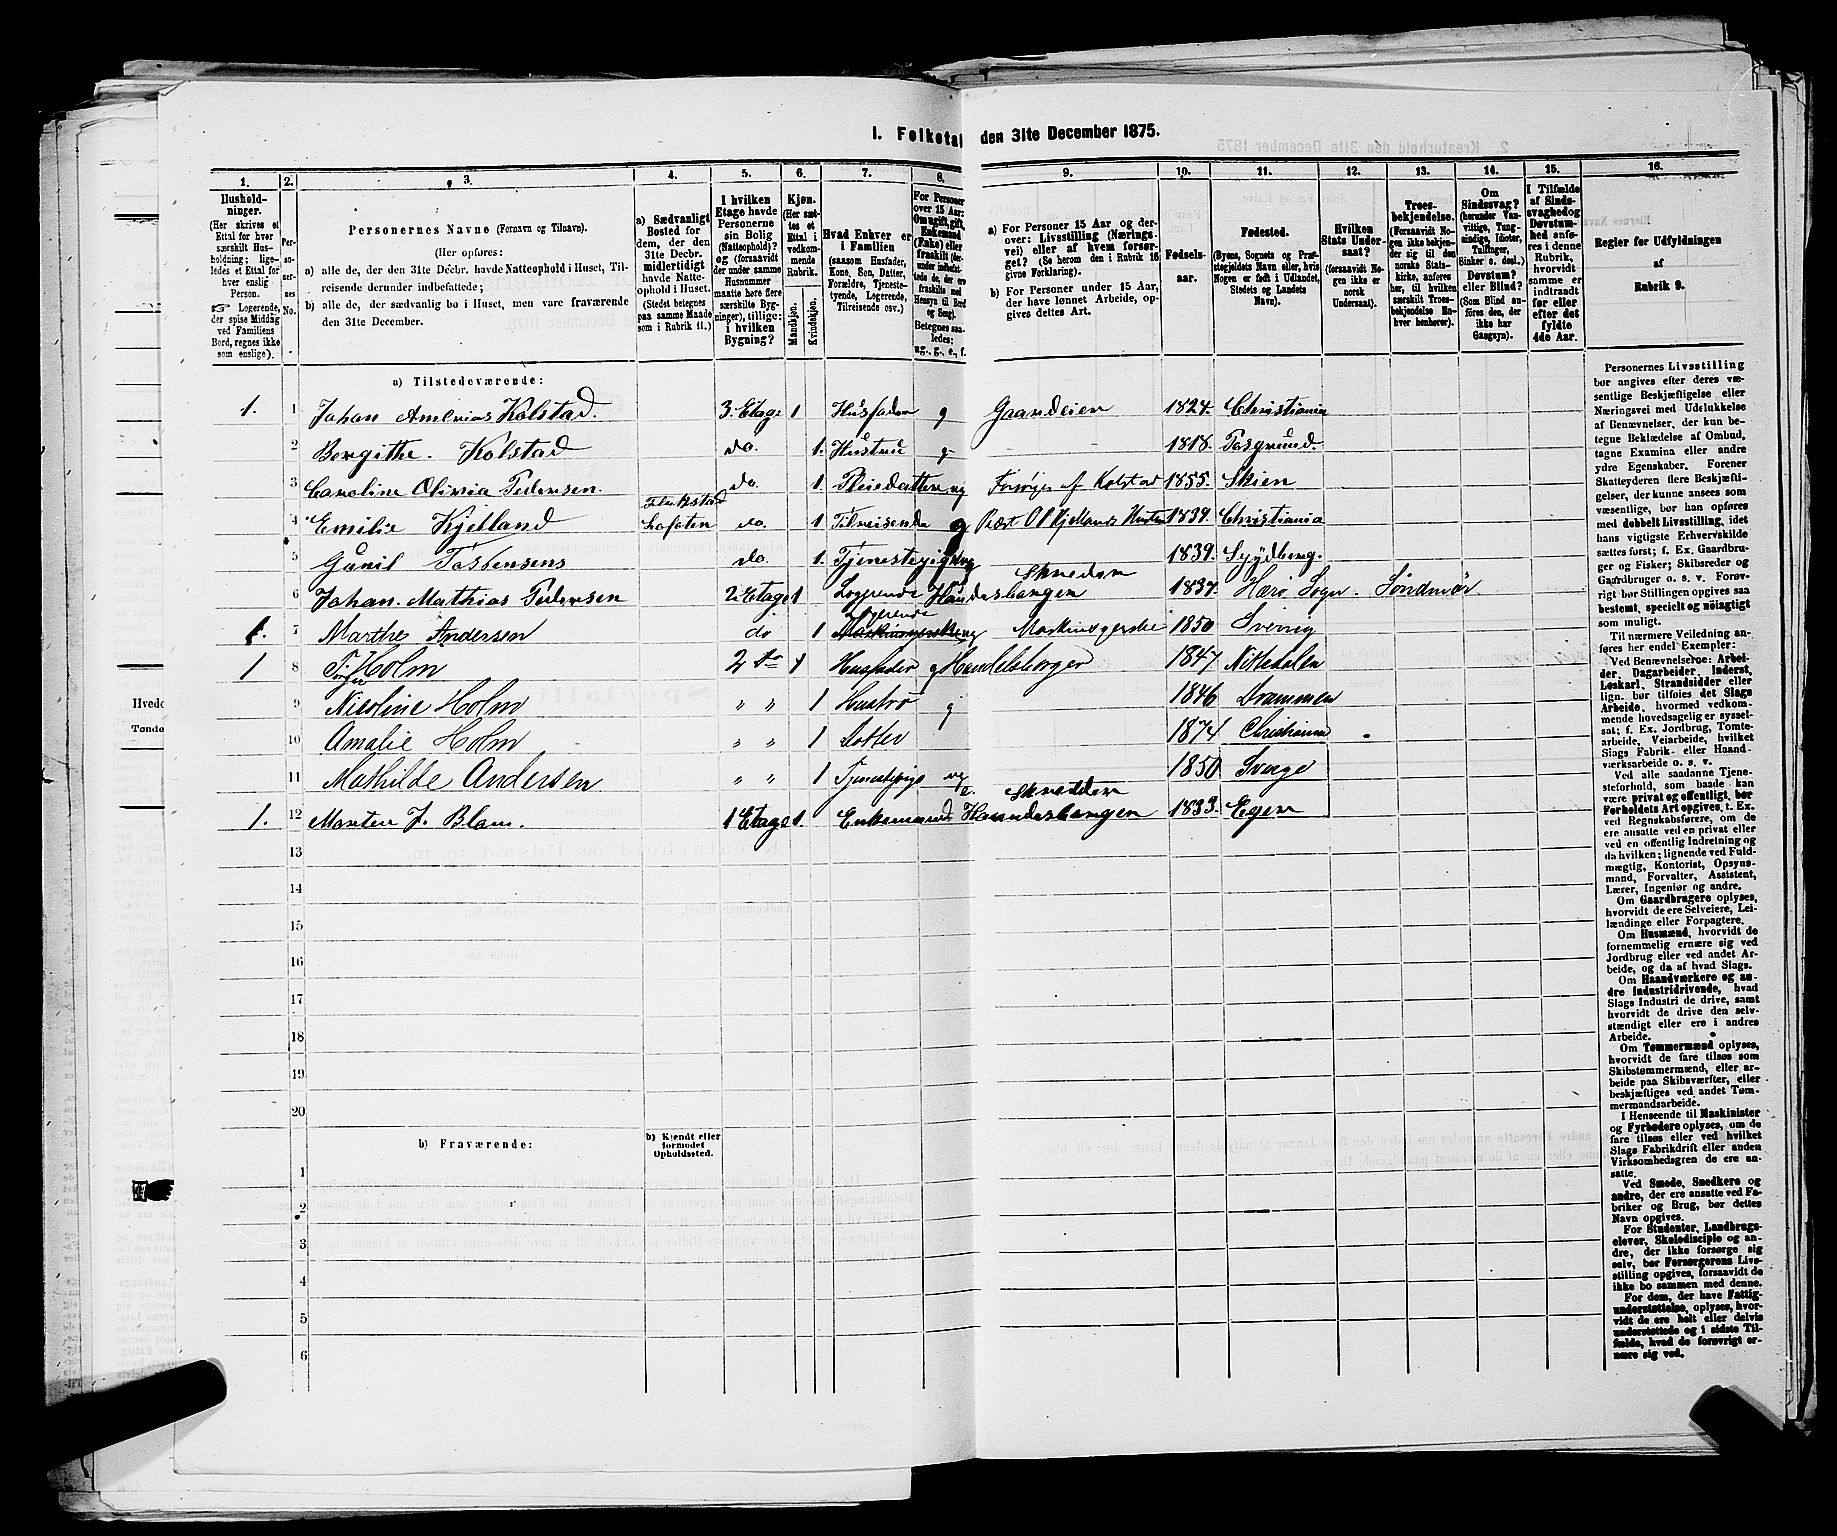 1. Folketal den 31te December 1875.
1. 2. 3. 4. 5. 6. 7. 8. 9. 10. 11. 12. 13. 14. 15. 16.
Hushold-
ninger.
(Her skrives et
Ettal for hver
særskilt Hus-
holdning; lige-
ledes et Ettal for
hver enslig
Person.
☞ Logerende,
der spise Middag
ved Familiens
Bord, regnes ikke
som enslige).
Per-
so-
ner-
nes
No.
Personernes Navne (Fornavn og Tilnavn).
(Her opføres:
a) alle de, der den 31te Decbr. havde Natteophold i Huset, Til-
reisende derunder indbefattede;
b) alle de, der sædvanlig bo i Huset, men vare fraværende
den 31te December.
a) Sædvanligt
Bosted for
dem, der den
31te Decbr.
midlertidigt
havde Natte-
ophold i Huset.
(Stedet betegnes
paa samme Maade
som i Rubrik 11.)
I hvilken
Etage havde
Personerne
sin Bolig
(Natteophold)?
og (forsaavidt
der under samme
Husnummer
maatte høre flere
særskilte Byg-
ninger), tillige:
i hvilken
Bygning?
Kjøn.
(Her sæt-
tes et
Ettal i
vedkom-
mende
Rubrik.
Mandkjøn.
Kvindekjøn.
Hvad Enhver er
i Familien
(saasom Husfader,
Kone, Søn, Datter,
Forældre, Tjeneste-
tyende, Logerende,
Tilreisende osv.)
For Personer
over 15 Aar:
Om ugift, gift,
Enkemand
(Enke) eller
fraskilt (der-
under indbefat-
tede de, der ere
fraskilte med
Hensyn til Bord
og Seng).
Betegnes saa-
ledes:
ug., g., e., f.
a) For Personer 15 Aar og der-
over: Livsstilling (Nærings-
vei) eller af hvem forsør-
get? (Se herom den i Rubrik 16
givne Forklaring).
b) For Personer under 15 Aar,
der have lønnet Arbeide, op-
gives dettes Art.
Fødsels-
aar.
Fødested.
(Byens, Sognets og Præ-
stegjeldets Navn eller, hvis
Nogen er født i Udlandet,
Stedets og Landets
Navn).
Hvilken
Stats Under-
saat?
(forsaavidt No-
gen ikke er
norsk
Undersaat).
Troes-
bekjendelse.
(Forsaavidt No-
gen ikke bekjen-
der sig til den
norske Stats-
kirke, anføres
her, til hvilken
særskilt Troes-
bekjendelse En-
hver henhører).
Om
Sindssvag?
(herunder Van-
vittige, Tung-
sindige, Idioter,
Tullinger,
Sinker o. desl.).
Døvstum?
eller Blind?
(Som Blind an-
føres den, der
ikke har
Gangsyn).
I Tilfælde
af Sinds-
svaghed og
Døvstum-
hed anfø-
res i denne
Rubrik,
hvorvidt
samme er
indtraadt
før eller
efter det
fyldte
4de Aar.
Regler for Udfyldningen
af
Rubrik 9.
a) Tilstedeværende:
1. 1 Johan Kolstad. 3. Etage 1 Husfader g Gaardeier 1824. Christiania
2 Borgithe. Kolstad do. 1. Hustru g 1818. Porsgrund.
3 Caroline Olivia Pedersen. do. 1. Pleiedatter ug Forsørges af Kolstad 1855. Skien
4 Emilie Kjelland Lofoten do. 1 Tilreisende g 1839. Christiania
5 Gunil do. 1. 1839.
Skræder
6 Johan. Mathias Pedersen 2 Etage 1 Logerende Haandes 1837. Herø Sogn. Søndmør
Logerende
7 Marthe Andersen do 1 ug Maskinsyerske 1850
1 8 Holm 2 1 Husfader g Handelsborger 1847 Nittedalen
9 Nicoline Holm " " 1 Hustro g 1846 Drammen
10 Amalie Holm " " 1 Datter 1874 Christiania
11 Mathilde Andersen " " 1 Tjenestepige ug 1850 Sverge
e. Skrædder
1. 12 Morten J. Blom. 1 Etage 1. Enkemand 1833. Eger
13
14
15
16
17
18
19
20
b) Fraværende:
b) Kjendt eller
formodet
Opholdssted.
1
2
3
4
5
6
Personernes Livsstilling
bør angives efter deres væ-
sentlige Beskjæftigelse eller
Næringsvei med Udelukkelse
af Benævnelser, der kun be-
tegne Beklædelse af Ombud,
tagne Examina eller andre
ydre Egenskaber. Forener
Skatteyderen flere Beskjæfti-
gelser, der kunne ansees som
væsentlige, bør han opføres
med dobbelt Livsstilling, idet
hans vigtigste Erhvervskilde
sættes først; f. Ex. Gaardbru-
ger og Fisker; Skibsreder og
Gaardbruger o. s. v. Forøv-
rigt bør Stillingen opgives saa
bestemt, specielt og nøiagtigt
som muligt.
Til nærmere Veiledning an-
føres her endel Exempler:
Ved Benævnelserne: Arbei-
der, Dagarbeider, Inderst,
Løskarl, Strandsidder eller
lign. bør tilføies det Slags
Arbeide, hvormed vedkom-
mende hovedsagelig er syssel-
sat; f. Ex. Jordbrug, Tomte-
arbeide, Veiarbeide, hvilket
Slags Fabrik- eller Haand-
værksarbeide o. s. v.
Ved alle saadanne Tjene-
steforhold, som baade kan
være privat og offentligt, bør
Forholdets Art opgives, f. Ex.
ved Regnskabsførere, om de
ere ansatte ved en privat eller
ved en offentlig Indretning og
da hvilken; lignende ved Fuld-
mægtig, Kontorist, Opsyns-
mand, Forvalter, Assistent,
Lærer, Ingeniør og andre.
Om Gaardbrugere oplyses,
hvorvidt de ere Selveiere, Lei-
lændinge eller Forpagtere.
Om Husmænd, hvorvidt de
fornemmelig ernære sig ved
Jordbrug eller ved andet Ar-
beide, og da af hvad Slags.
Om Haandværkere og an-
dre Industridrivende, hvad
Slags Industri de drive, samt
hvorvidt de drive den selv-
stændigt eller ere i andres
Arbeide.
Om Tømmermænd oplyses,
hvorvidt de fare tilsøs som
Skibstømmermænd, eller ar-
beide paa Skibsværfter, eller
beskjæftiges ved andet Tøm-
mermandsarbeide.
I Henseende til Maskinister
og Fyrbødere oplyses, om de
fare tilsøs eller ved hvilket
Slags Fabrikdrift eller anden
Virksomhedsgren de ere an-
satte.
Ved Smede, Snedkere og
andre, der ere ansatte ved Fa-
briker og Brug, bør dettes
Navn opgives.
For Studenter, Landbrugs-
elever, Skoledisciple og an-
dre, der ikke forsørge sig
selv, bør Forsørgerens Livs-
stilling opgives, forsaavidt de
ikke bo sammen med denne.
For dem, der have Fattig-
understøttelse, oplyses, hvor-
vidt de ere helt eller delvis
understøttede og i sidste Til-
fælde, hvad de forøvrigt er-
nære sig ved.
Tønde